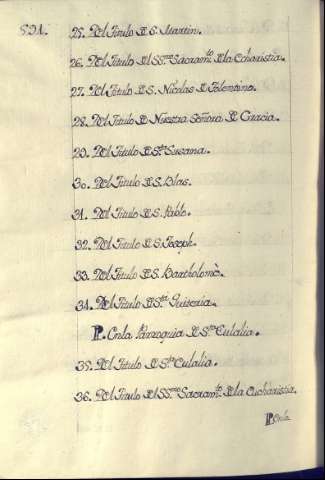 591.
25. Del Titulo de S. Martin.
26. Del Titulo del SSmo Sacramto. de la Echaristia.
27. Del Titulo de S. Nicolas de Tolentino.
28. Del Titulo de Nuestra Señora de Gracia.
29. Del Titulo de Sta Susana.
30. Del Titulo de S. Blas.
31. Del Titulo de S. Pablo.
32. Del Titulo de S. Joseph.
33. Del Titulo de S. Bartholomè.
34. Del Titulo de Sta Quiteria.
P. En la Parroquia de Sta Eulalia.
35. Del Titulo de Sta Eulalia.
36. Del Titulo del SSmo Sacramto. de la Eucharistia.
P. En la